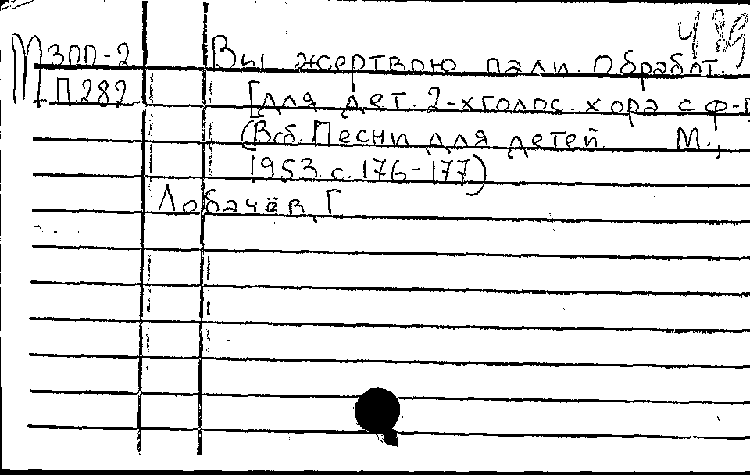 489
М ЗПП-2 Вы жертвою пали. Обработ.
П282 [для дет. 2-хголос. хора с ф-п
(В сб. Песни для детей. М.,
1953 с. 176-177)
Лобачёв, Г.